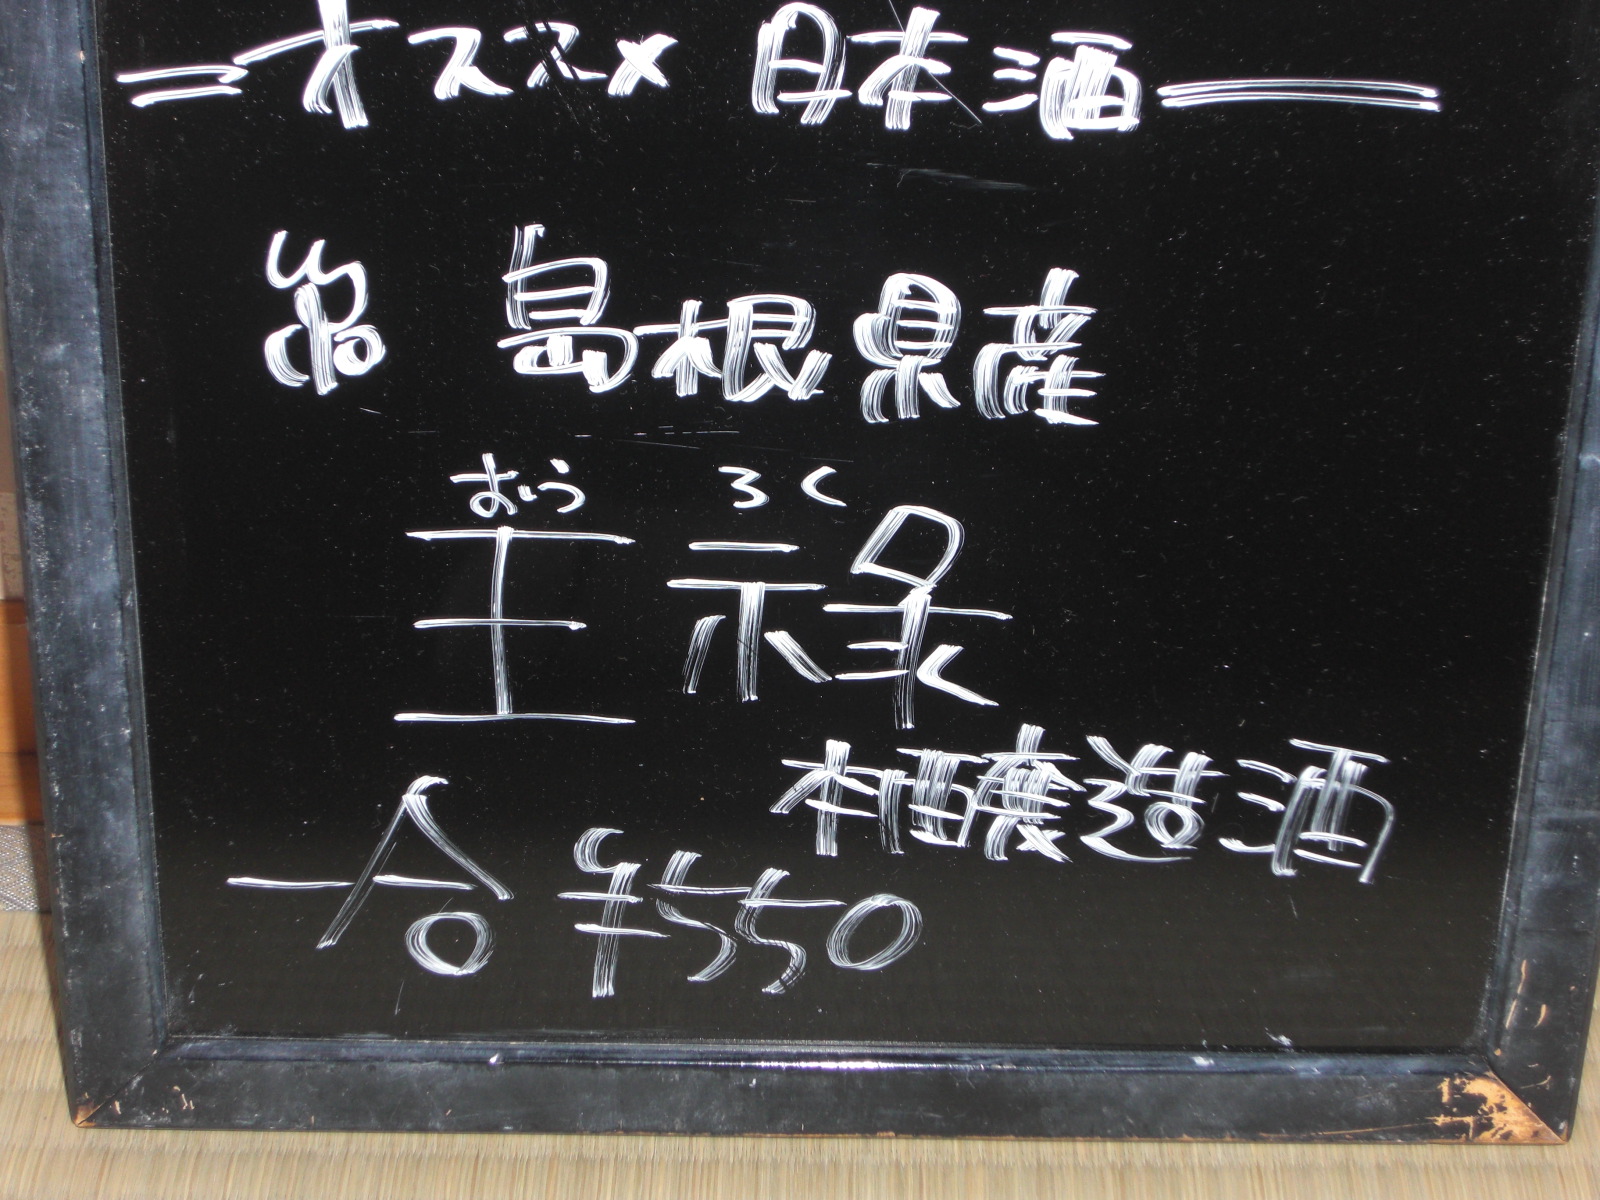 オススメ 日本酒
島根県産
おうろく
王禄
本醸造酒
一合 ¥550